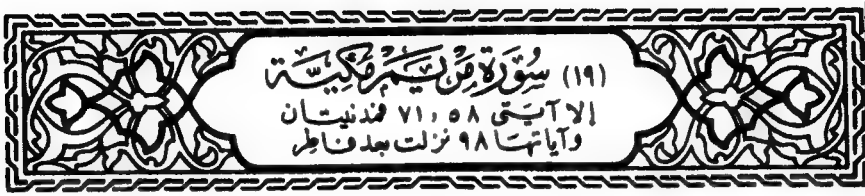 (١٩) سُورَة مَرْيَم مَكيَّة
إلا آيتى ٥٨ و ٧١ فمدنيتان
وآياتها ٩٨ نزلت بعد فاطر